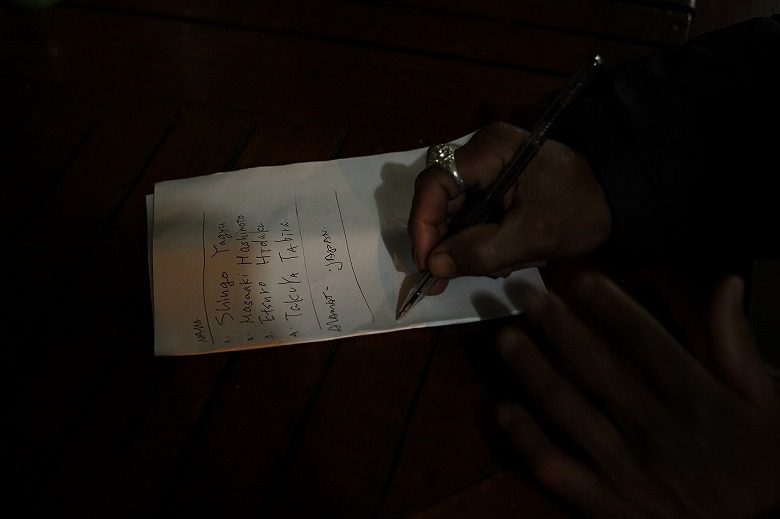 NAMA
1. Shingo Yagyu
2. Masaaki Hashimoto
3. Etsuro Hidaka
4. TAKUYA TABIRA
ALAMAT - JAPAN